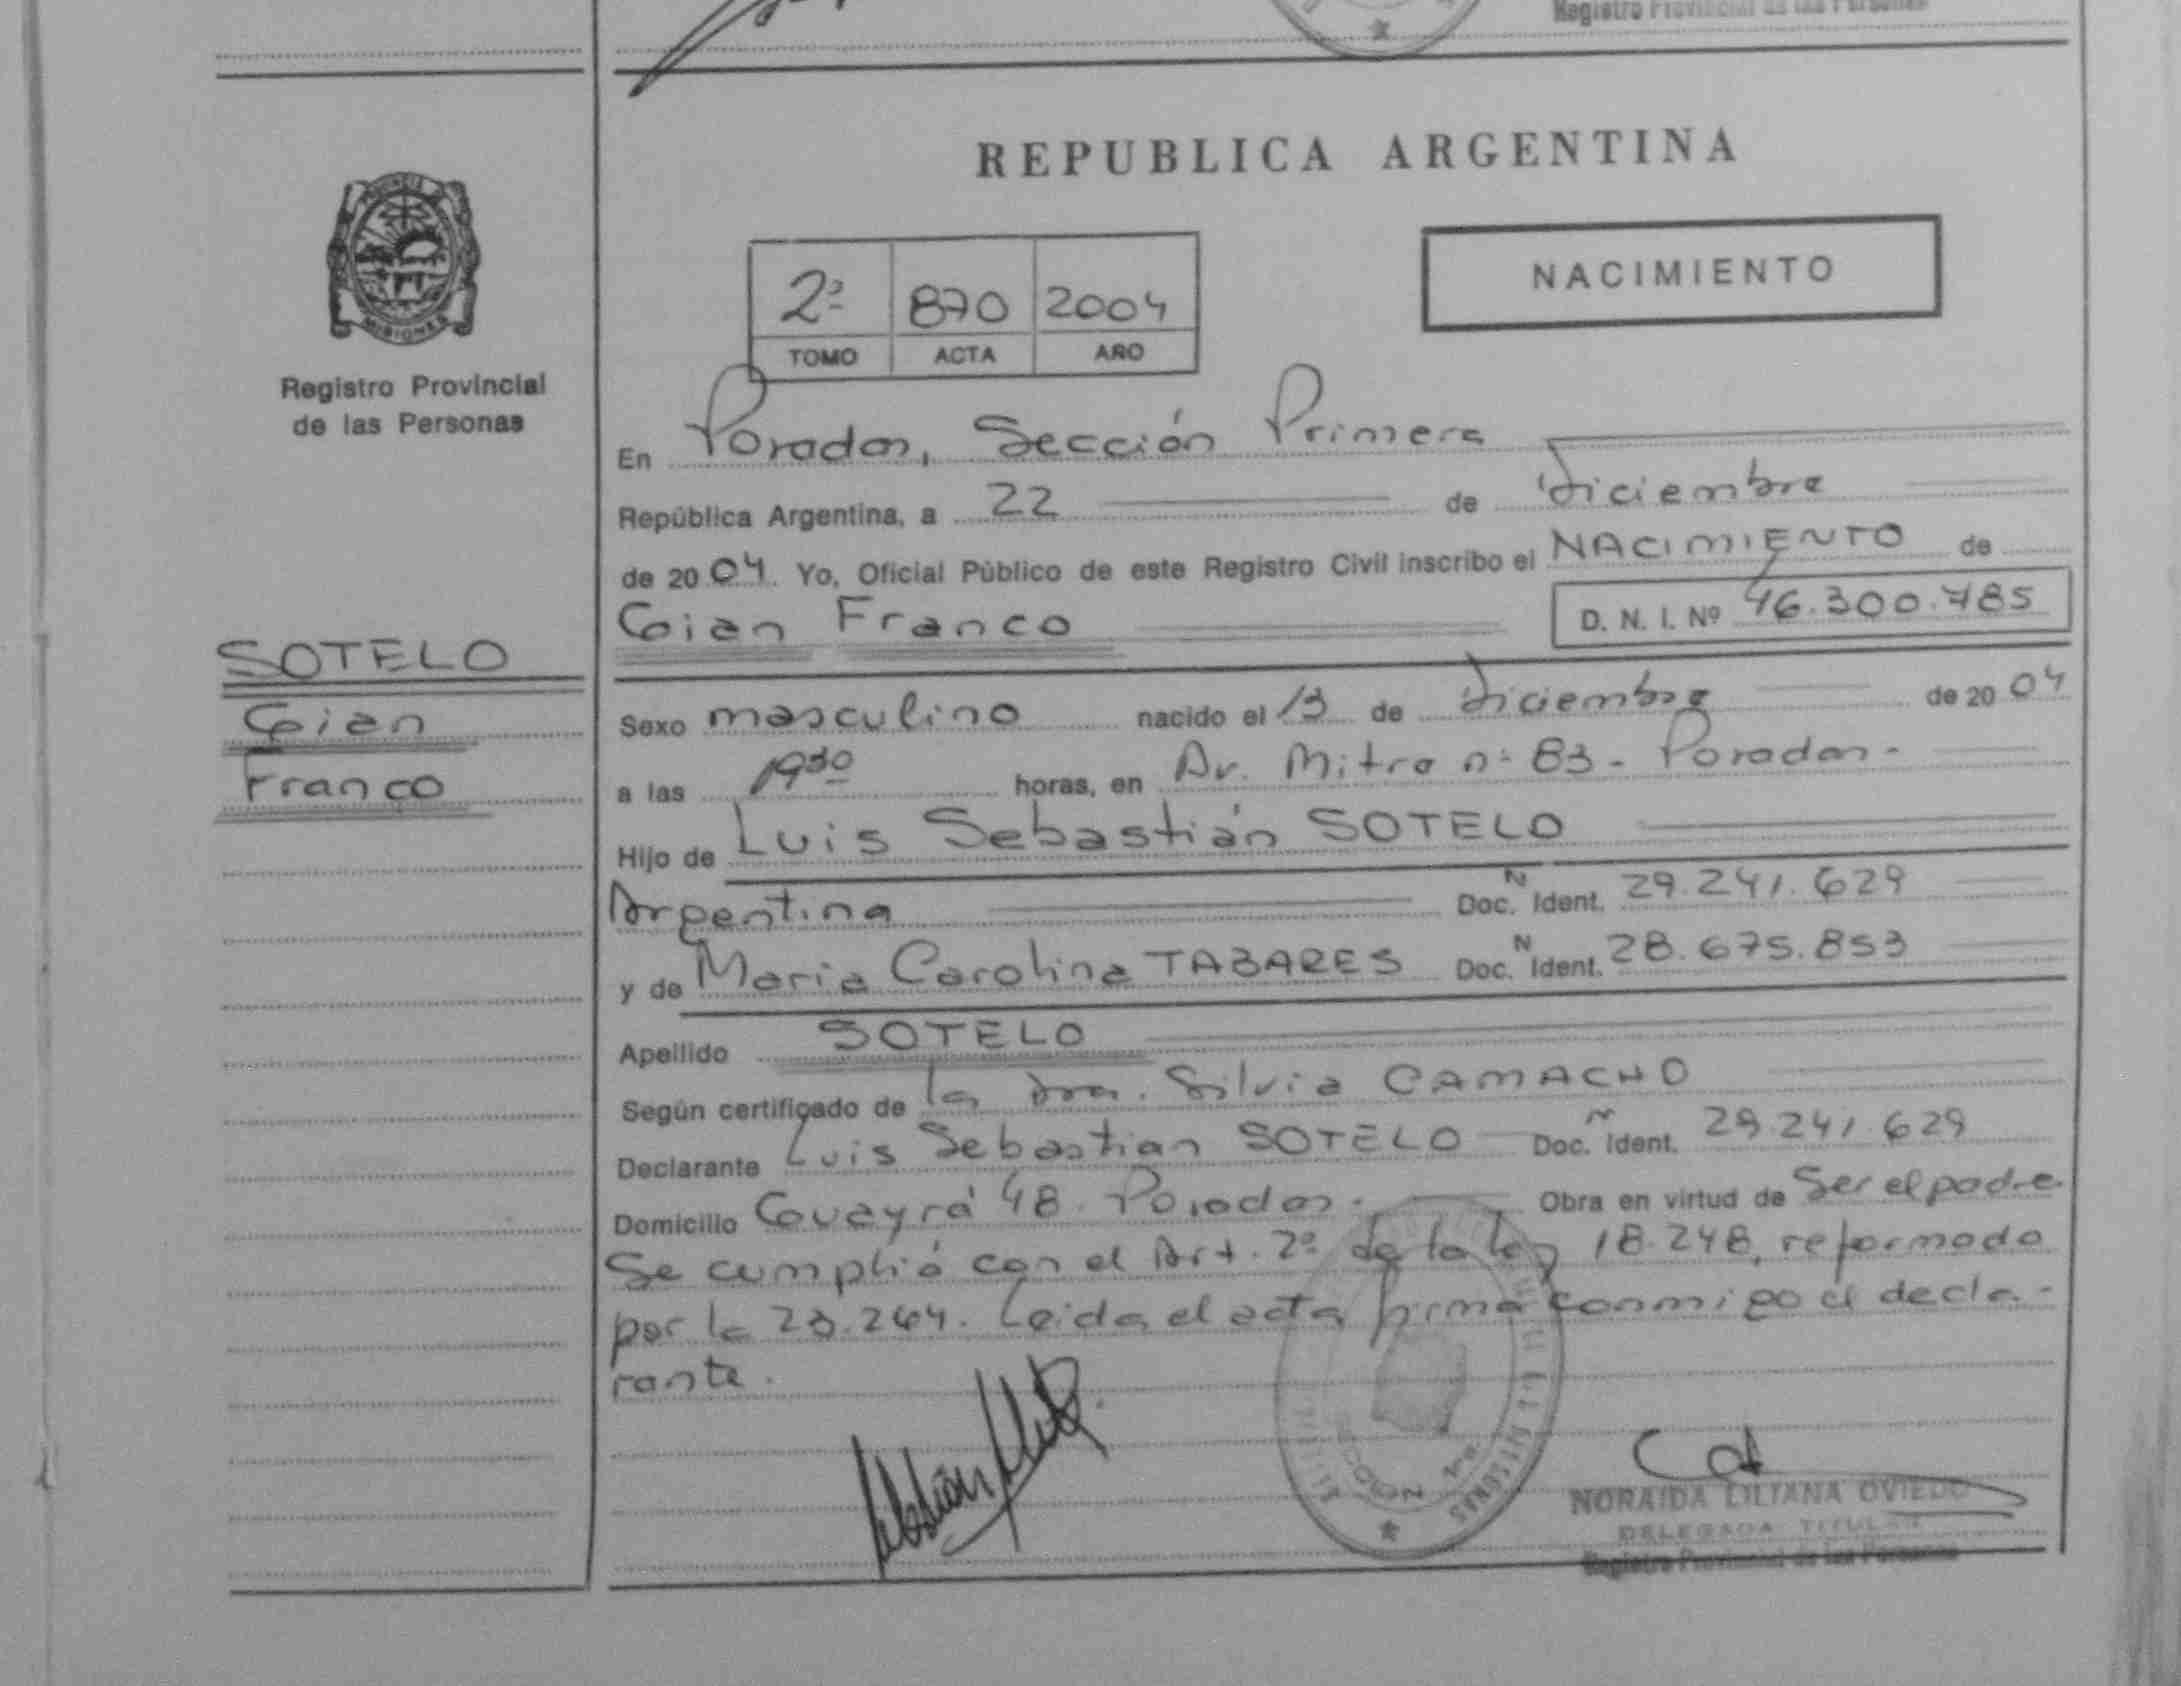 Registro Provincial de las Personas
REPUBLICA ARGENTINA
NACIMIENTO
2ª 870 2004
TOMO ACTA AÑO
MISIONES
Registro Provincial
de las Personas
En Posadas, Sección Primera
República Argentina, a 22 de diciembre
de 2004. Yo, Oficial Público de este Registro Civil inscribo el NACIMIENTO de
Gian Franco D. N. I. Nº 46.300.785
SOTELO
Gian
Franco
Sexo masculino nacido el 13 de diciembre de 2004
a las 19³⁰ horas, en Av. Mitre nº 83 - Posadas -
Hijo de Luis Sebastián SOTELO
Argentina Doc. N Ident. 29.241.629
y de Maria Carolina TABARES Doc. N Ident. 28.675.853
Apellido SOTELO
Según certificado de la Dra. Silvia CAMACHO
Declarante Luis Sebastian SOTELO Doc. N Ident. 29.241.629
Domicilio Guayrá 48. Posadas. Obra en virtud de Ser el padre.
Se cumplió con el Art. 2º de la ley 18.248, reformado
por la 23.264. Leida el acta firma conmigo el decla-
rante.
SECCION 1ra.
MISIONES
NORAIDA LILIANA OVIEDO
DELEGADA TITULAR
Registro Provincial de las Personas